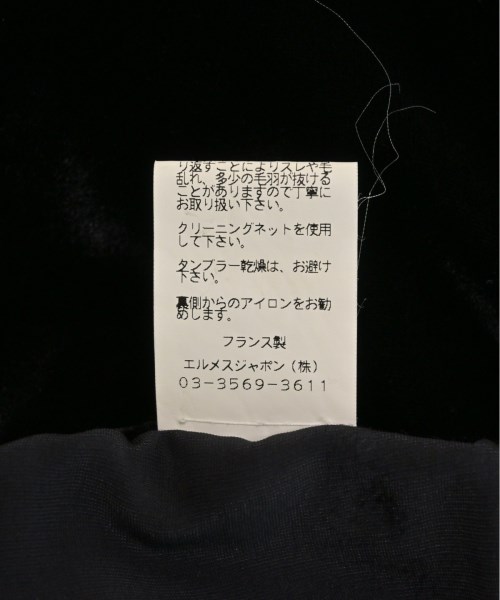 り返すことによりスレや毛
乱れ、多少の毛羽が抜ける
ことがありますので丁寧に
お取り扱い下さい。
クリーニングネットを使用
して下さい。
タンブラー乾燥は、お避け
下さい。
裏側からのアイロンをお勧
めします。
フランス製
エルメスジャポン（株）
03-3569-3611